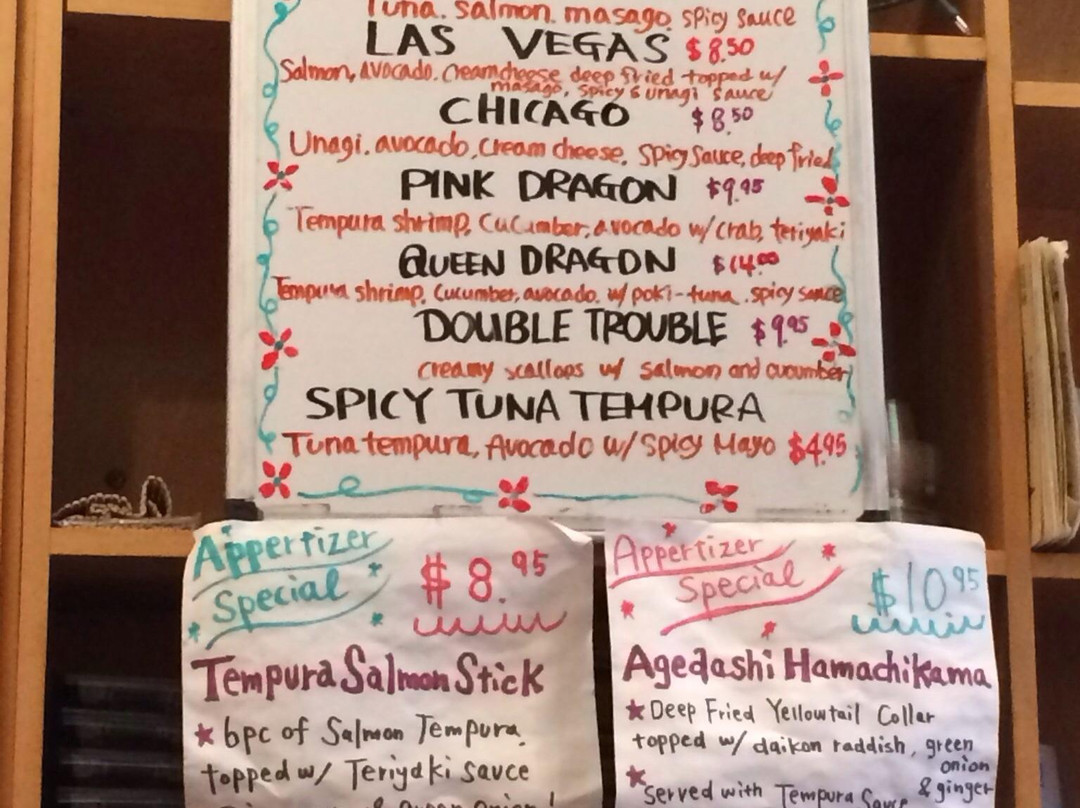 Tuna. Salmon. masago. spicy sauce
LAS VEGAS $8.50
Salmon, avocado. Creamcheese deep fried topped w/
masago, spicy & unagi sauce
CHICAGO $8.50
Unagi. avocado, cream cheese. Spicy Sauce, deep fried
PINK DRAGON $9.95
Tempura shrimp, Cucumber, avocado w/ crab, teriyaki
QUEEN DRAGON $14.00
Tempura shrimp. Cucumber, avocado. w/ poki-tuna. spicy sauce
DOUBLE TROUBLE $9.95
creamy scallops w/ salmon and cucumber
SPICY TUNA TEMPURA
Tuna tempura, Avocado w/ Spicy Mayo $4.95
Appertizer
Special
$8.95
Tempura Salmon Stick
★ 6pc of Salmon Tempura
topped w/ Teriyaki sauce
Appertizer
Special
$10.95
Agedashi Hamachikama
★ Deep Fried Yellowtail Collar
topped w/ daikon raddish, green
onion
& ginger
★ Served with Tempura Sauce